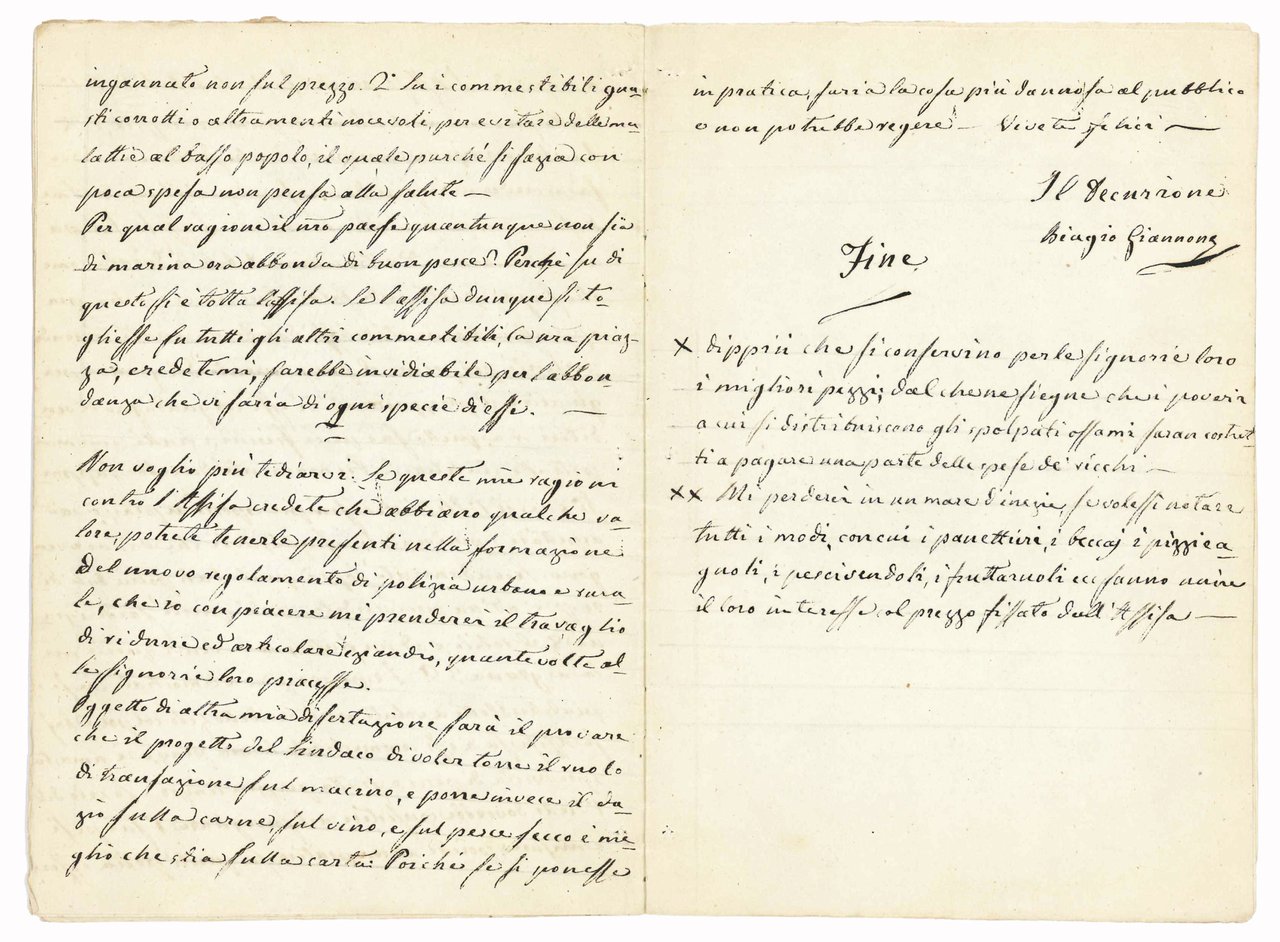 ingannato non sul prezzo. 2° Su i commestibili gua
sti corrotti o altramenti nocevoli, per evitare delle ma
lattie al basso popolo, il quale purché si sazia con
poca spesa non pensa alla salute —
Per qual ragione il nro paese quantunque non sia
di marina ora abbonda di buon pesce? Perché su di
questo si è tolta l'assisa. Se l'assisa dunque si to-
gliesse su tutti gli altri commestibili, la nra piaz-
za, credetemi, sarebbe invidiabile per l'abbon-
danza che vi saria di ogni specie di essi. —
Non voglio più tediarvi. Se queste mie ragioni
contro l'Assisa credete che abbiano qualche va-
lore, potrete tenerle presenti nella formazione
del nuovo regolamento di polizia urbana e rura-
le, che io con piacere mi prenderei il travaglio
di ridurre ed articolare eziandio, quante volte al-
le signorie loro piacesse.
Oggetto di altra mia disertazione sarà il provare
che il progetto del Sindaco di voler torre il ruolo
di transazione sul macino, e porre invece il da-
zio sulla carne, sul vino, e sul pesce secco è me-
glio che stia sulla carta: Poiché se si ponesse
in pratica, saria la cosa più dannosa al pubblico
e non potrebbe regere — Vivete felici —
Il Decurione
Biagio Giannone
Fine
X dippiù che si conservino per le signorie loro
i migliori pezzi; dal che ne siegue che i poveri
a cui si distribuiscono gli spolpati ossami saran costret-
ti a pagare una parte delle spese de' ricchi —
XX Mi perderei in un mare d'inezie, se volessi notare
tutti i modi, con cui i panettieri, i beccaj i pizzica-
gnoli, i pescivendoli, i fruttaruoli ec sanno unire
il loro interesse col prezzo fissato dall'Assisa —